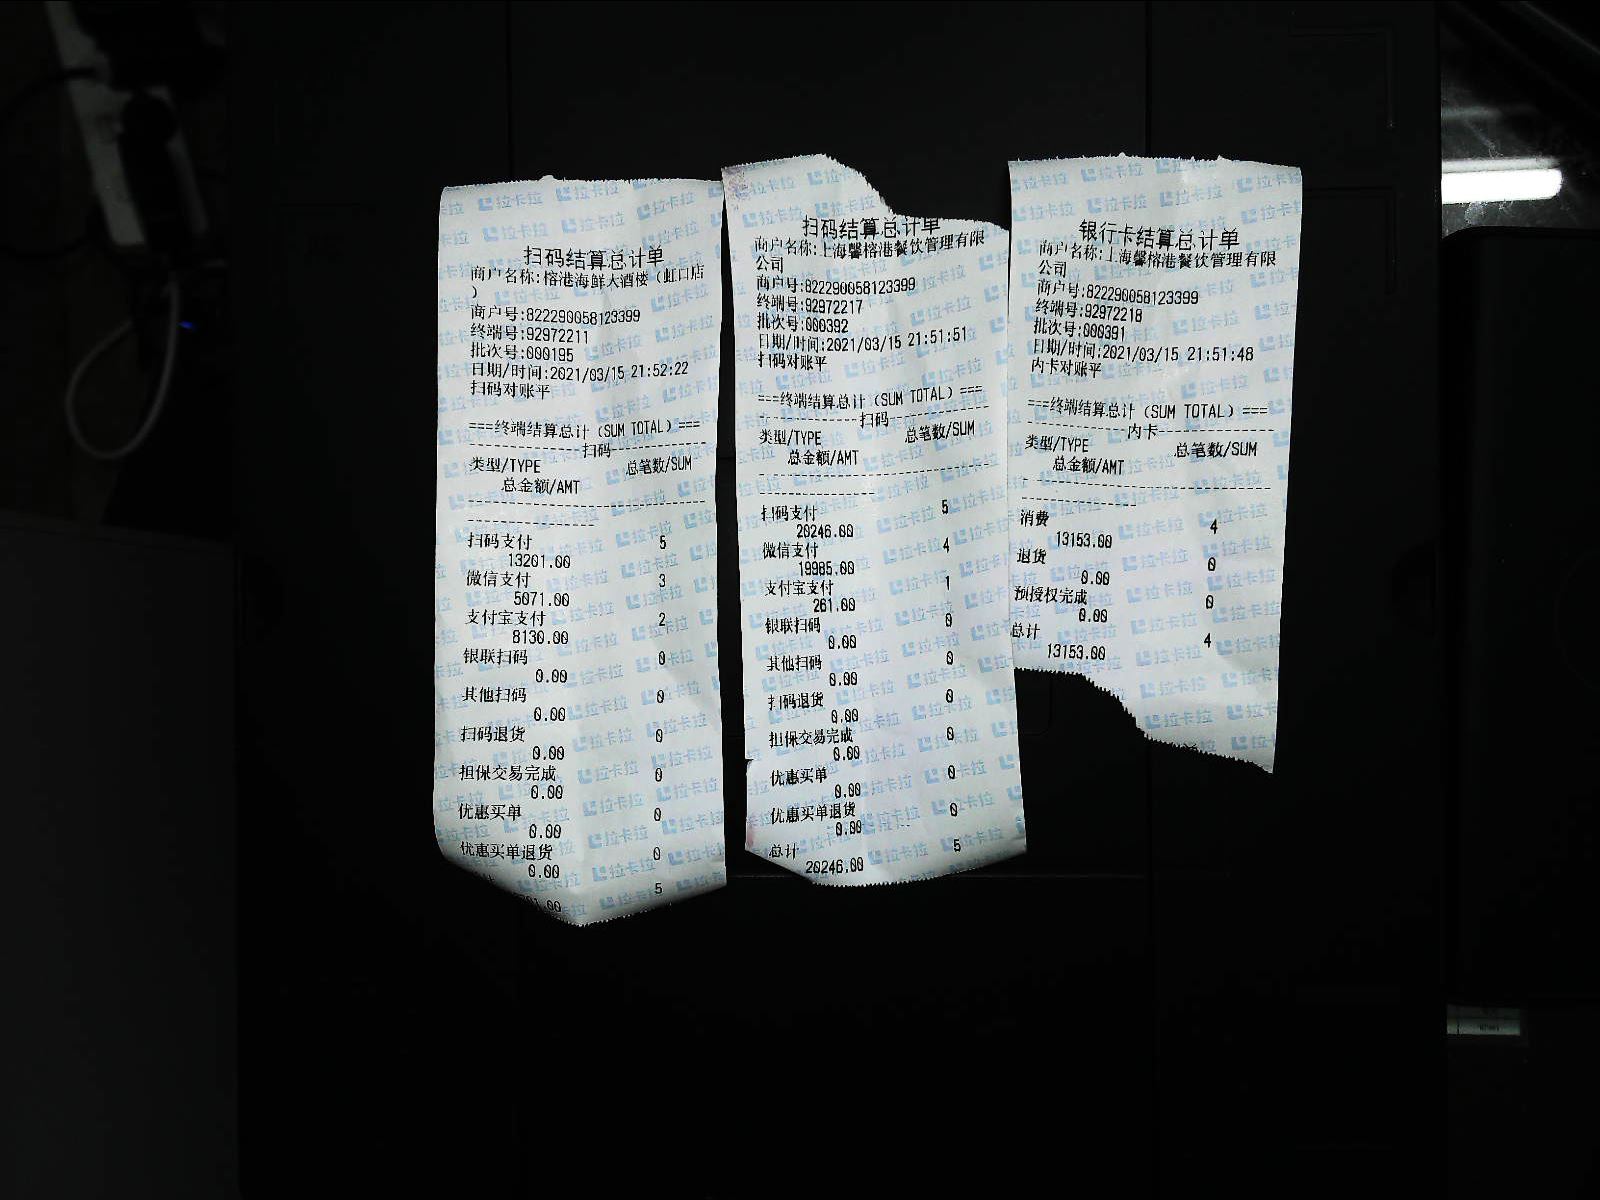 扫码结算总计单
商户名称:榕港海鲜大酒楼（虹口店
）
商户号:822290058123399
终端号:92972211
批次号:000195
日期/时间:2021/03/15 21:52:22
扫码对账平
===终端结算总计（SUM TOTAL）===
扫码
类型/TYPE 总笔数/SUM
总金额/AMT
扫码支付 5
13201.00
微信支付 3
5071.00
支付宝支付 2
8130.00
银联扫码 0
0.00
其他扫码 0
0.00
扫码退货 0
0.00
担保交易完成 0
0.00
优惠买单 0
0.00
优惠买单退货 0
0.00
5
扫码结算总计单
商户名称:上海馨榕港餐饮管理有限
公司
商户号:822290058123399
终端号:92972217
批次号:000392
日期/时间:2021/03/15 21:51:51
扫码对账平
===终端结算总计（SUM TOTAL）===
扫码
类型/TYPE 总笔数/SUM
总金额/AMT
扫码支付 5
20246.00
微信支付 4
19985.00
支付宝支付 1
261.00
银联扫码 0
0.00
其他扫码 0
0.00
扫码退货 0
0.00
担保交易完成 0
0.00
优惠买单 0
0.00
优惠买单退货 0
0.00
总计 5
20246.00
银行卡结算总计单
商户名称:上海馨榕港餐饮管理有限
公司
商户号:822290058123399
终端号:92972218
批次号:000391
日期/时间:2021/03/15 21:51:48
内卡对账平
===终端结算总计（SUM TOTAL）===
内卡
类型/TYPE 总笔数/SUM
总金额/AMT
消费 4
13153.00
退货 0
0.00
预授权完成 0
0.00
总计 4
13153.00